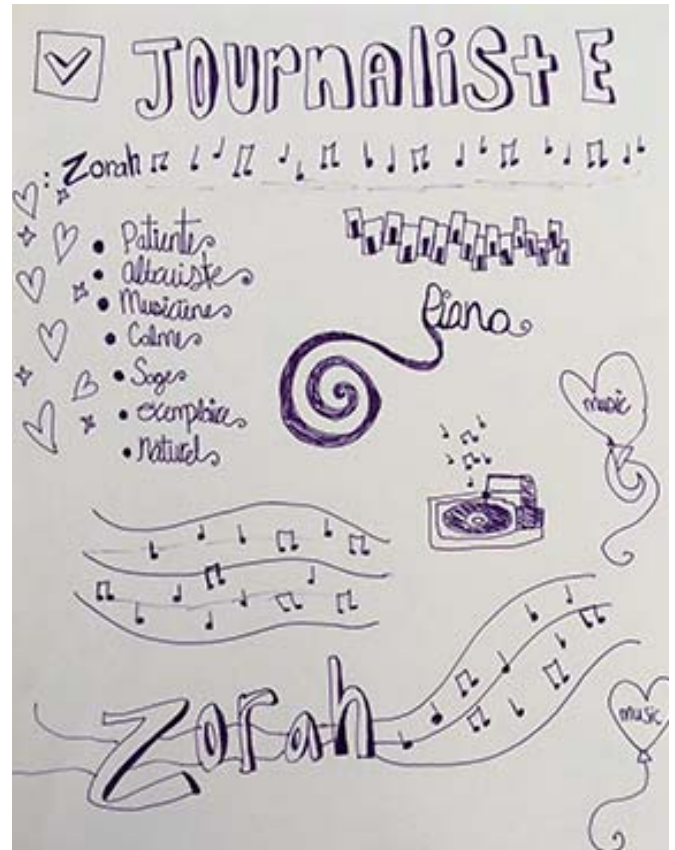 JOURNALiStE
: Zorah
• Patiente
• altruiste
• Musiciene
• Calme
• Sage
• exemplaire
• Naturel
Piano
music
Zorah
music